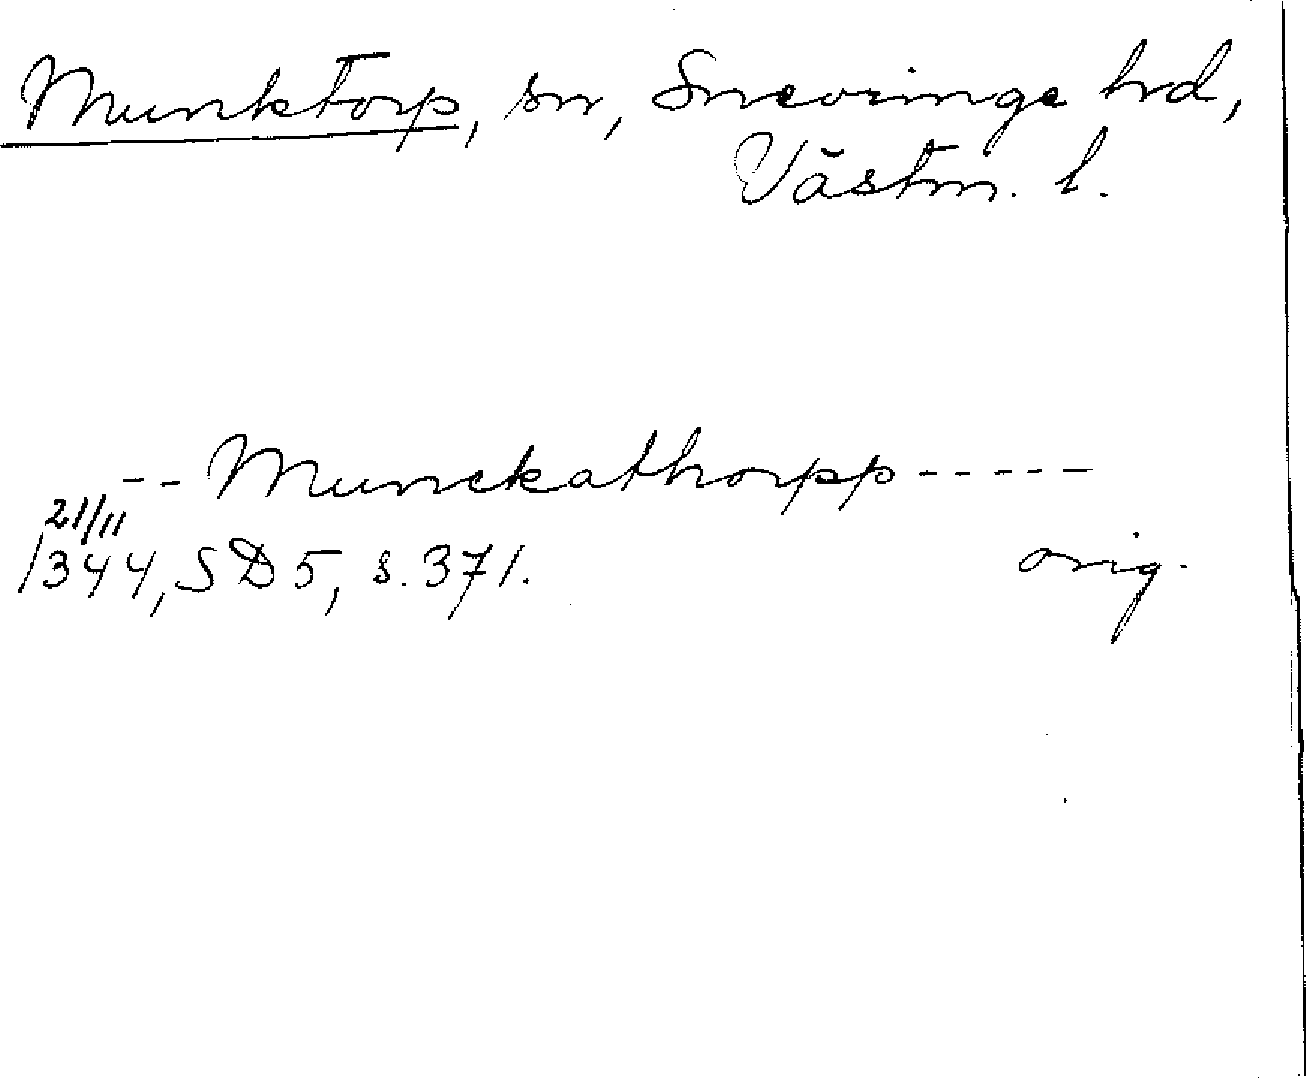 Munktorp, sn, Snevringe hd,
Västm. l.
-- Munckathorpp -----
21/11
1344, SD 5, s. 371. orig.